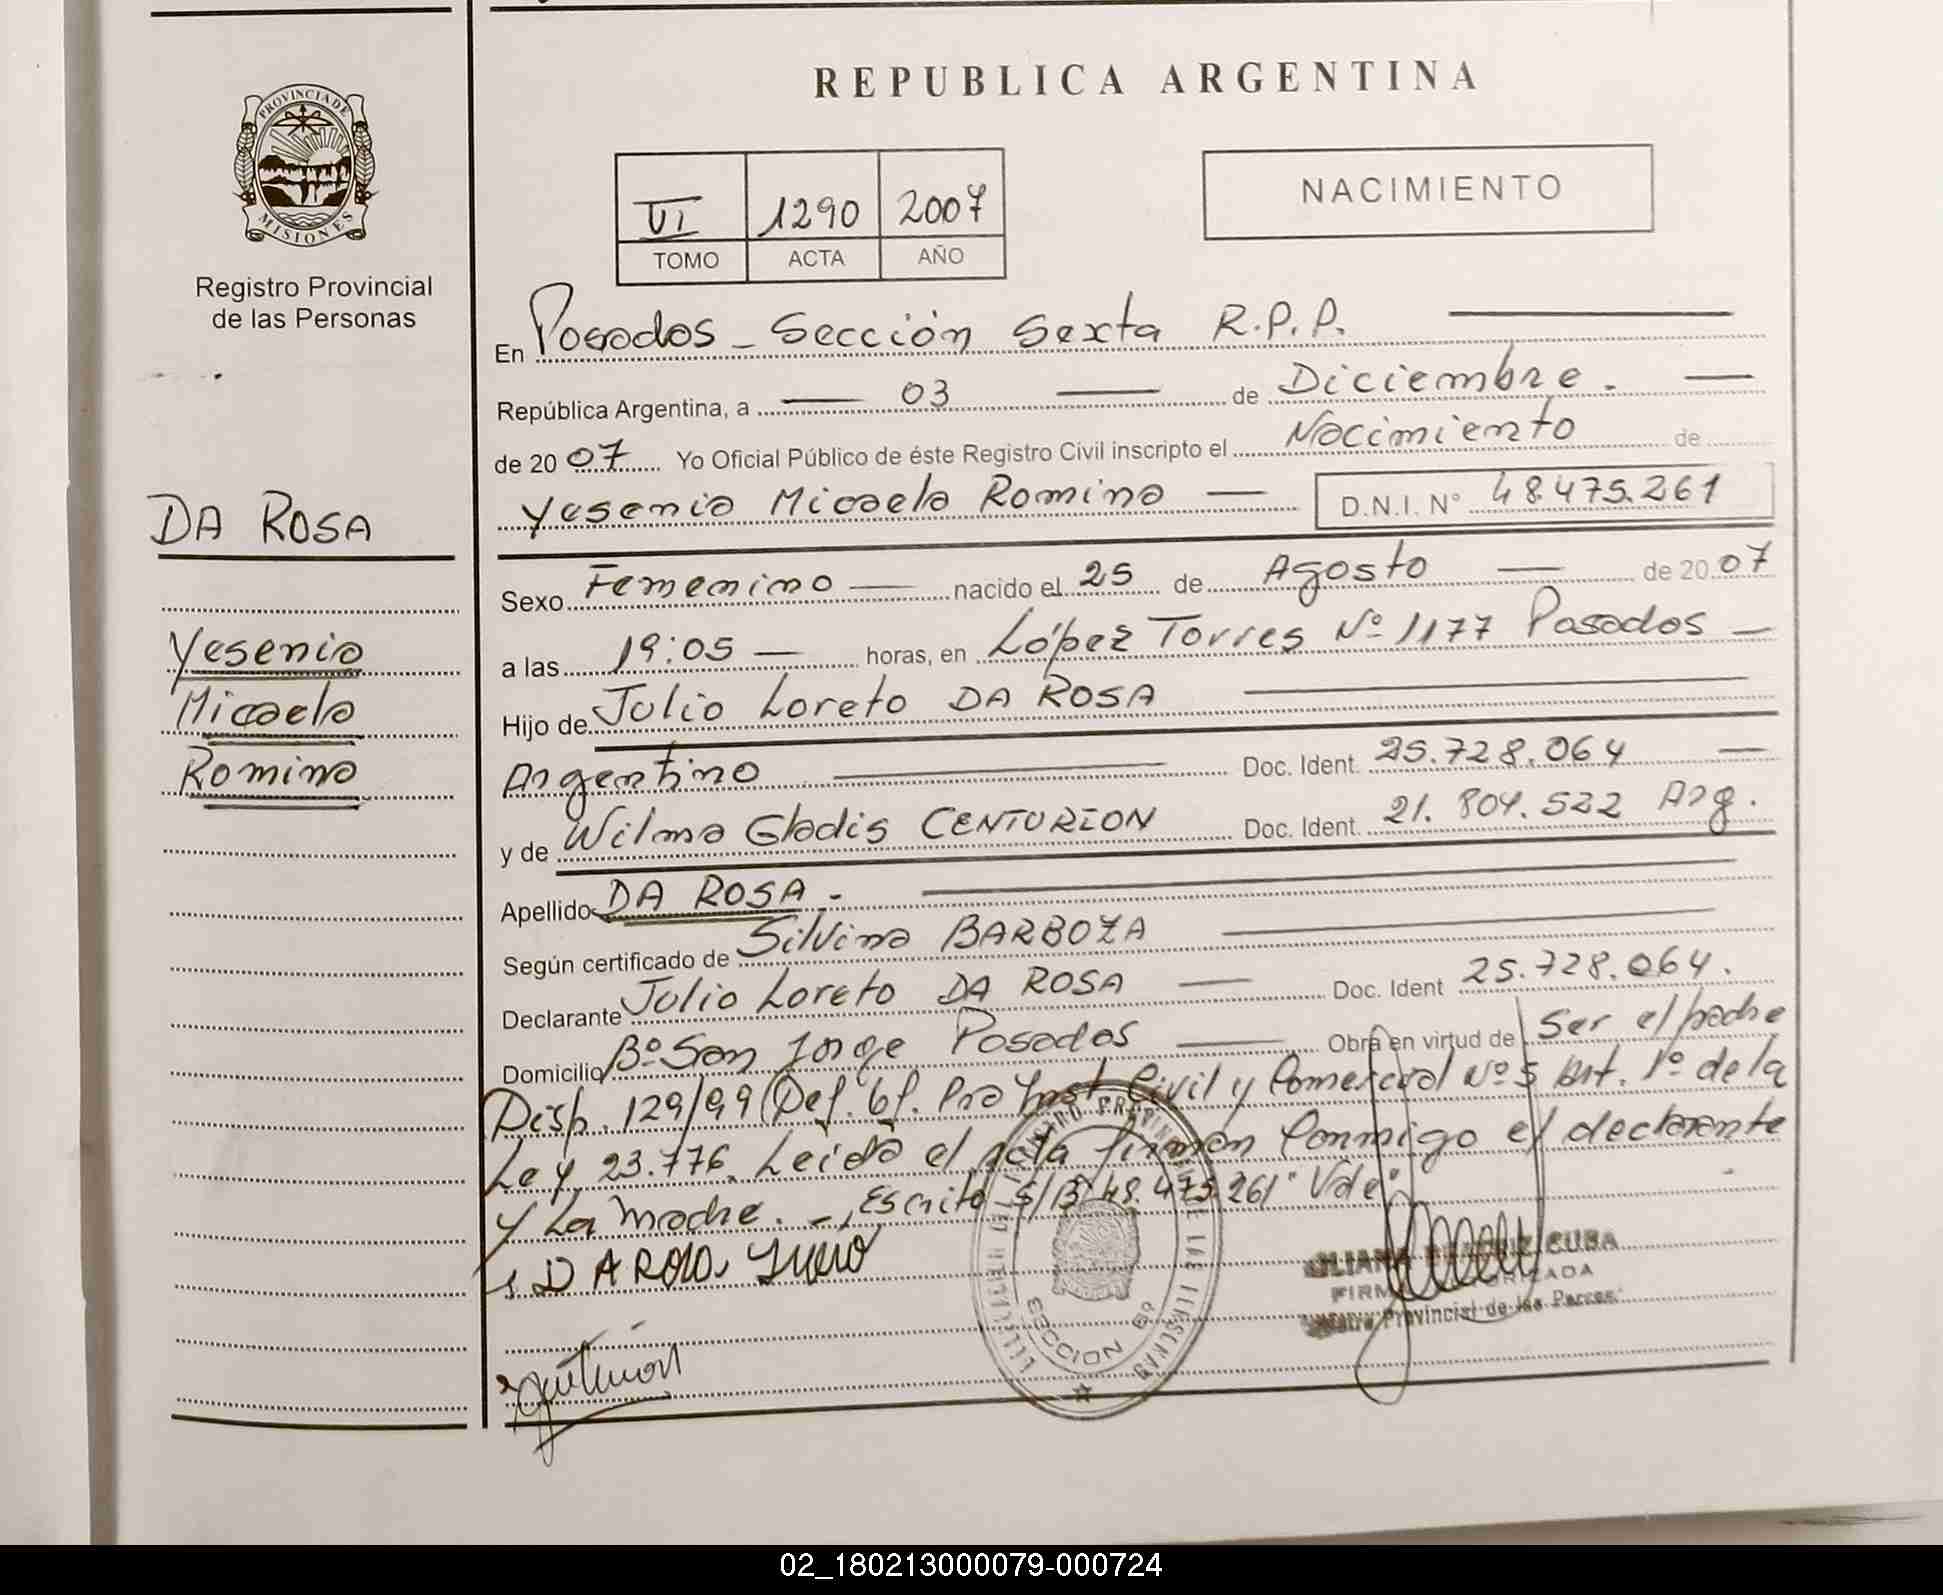 REPUBLICA ARGENTINA
PROVINCIA DE
MISIONES
Registro Provincial
de las Personas
VI 1290 2007
TOMO ACTA AÑO
NACIMIENTO
En Posadas - Sección Sexta R.P.P.
República Argentina, a 03 de Diciembre.
de 2007 Yo Oficial Público de éste Registro Civil inscripto el Nacimiento de
Yesenia Micaela Romina D.N.I. Nº 48.475.261
DA ROSA
Yesenia
Micaela
Romina
Sexo Femenino nacido el 25 de Agosto de 2007
a las 19:05 horas, en López Torres Nº 1177 Posadas
Hijo de Julio Loreto DA ROSA
Argentino Doc. Ident. 25.728.064
y de Wilma Gladis CENTURION Doc. Ident. 21.804.522 Arg.
Apellido DA ROSA.
Según certificado de Silvina BARBOZA
Declarante Julio Loreto DA ROSA Doc. Ident 25.728.064.
Domicilio Bº San Jorge Posadas Obra en virtud de Ser el padre
Disp. 129/99 (Def. Of. Pra Inst. Civil y Comercial Nº 5 Art. 1º de la
Ley 23.776. Leída el acta firman Conmigo el declarante
y La madre. -, Escrito S/B 48.475.261 "Vale"
DA ROSA JULIO
SECCION 6º
BEATRIZ CUBA
FIRMA AUTORIZADA
Provincial de las Personas
02_180213000079-000724